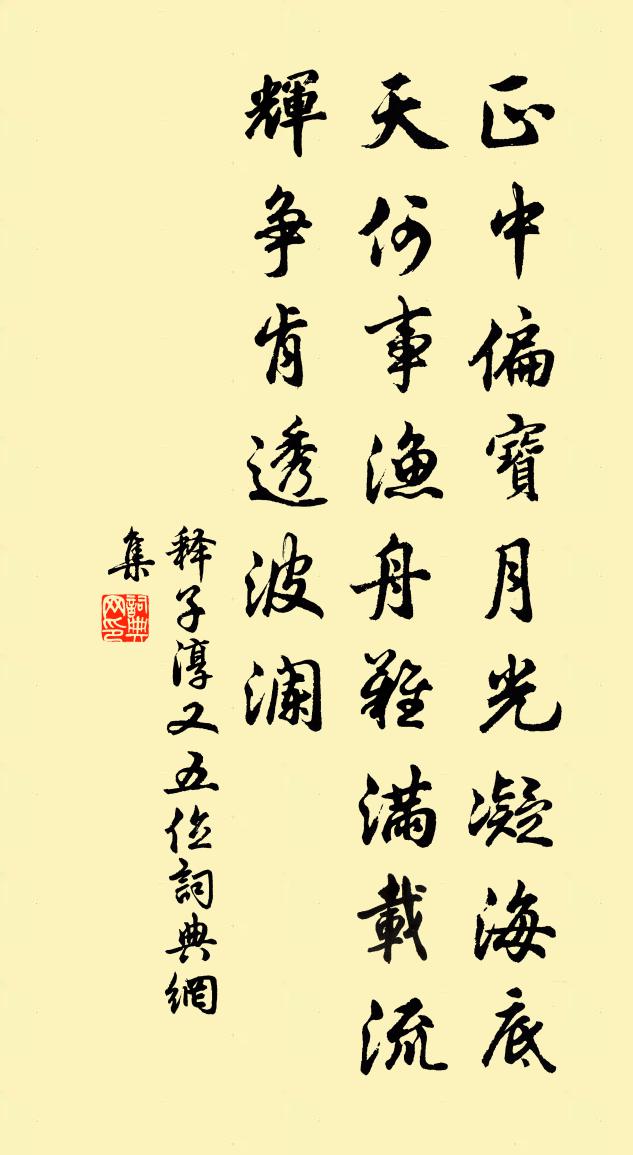 正中偏寶月光凝海底
天何事漁舟難滿載流
輝争肯透波瀾
释子淳又五位詞典網
集
詞典网印